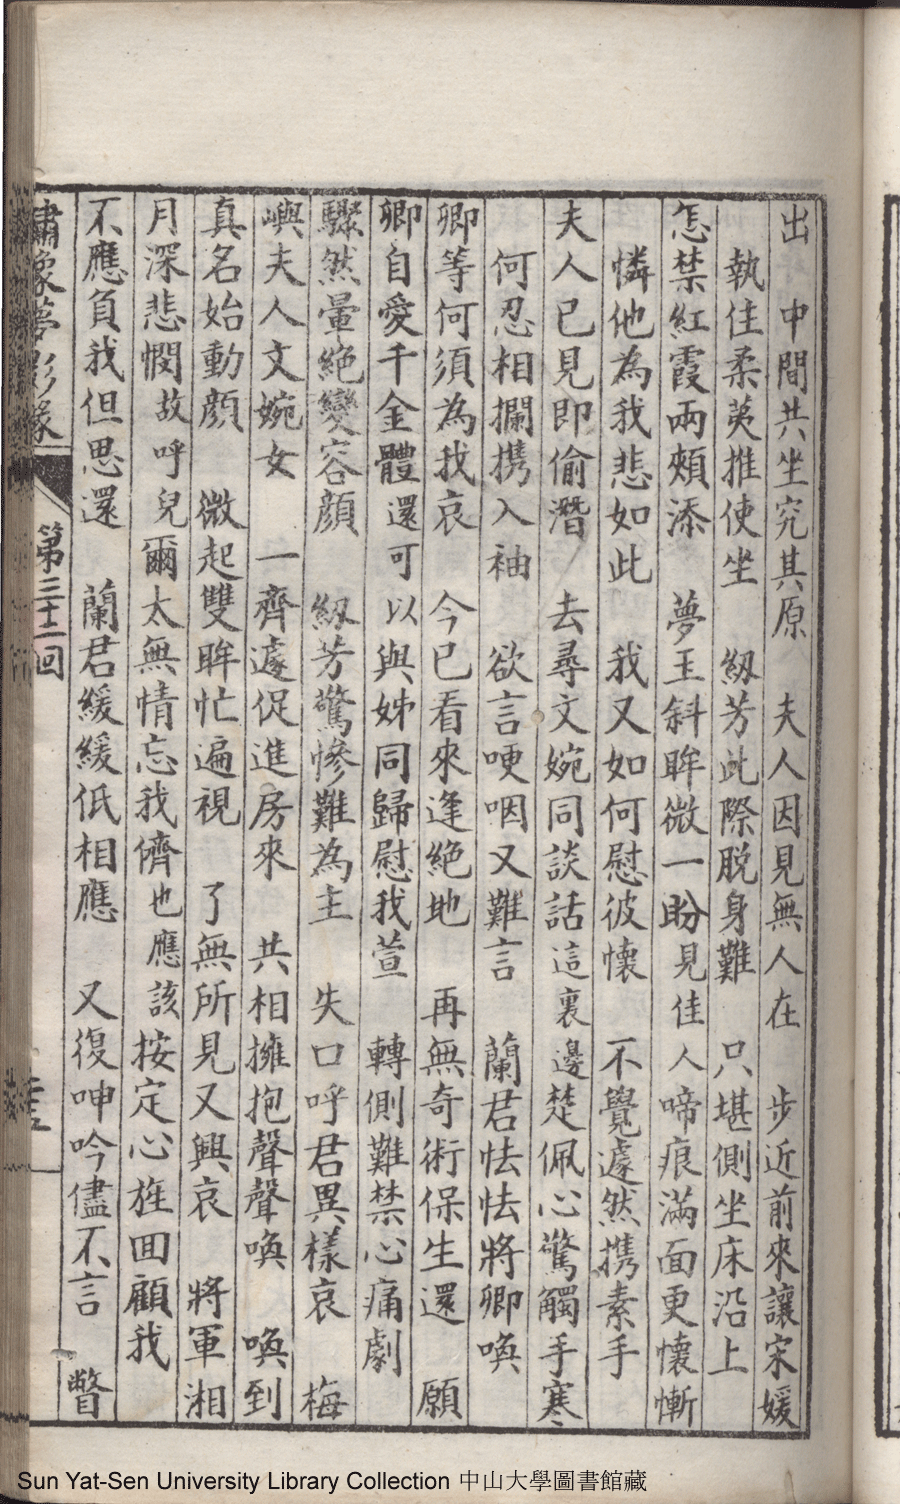 出　中間共坐究其原　夫人因見無人在　步近前來讓宋媛
執住柔荑推使坐　紉芳此際脱身難　只堪側坐床沿上
怎禁紅霞兩頰添　夢玉斜眸微一盼見佳人啼痕滿面更懷慚
憐他為我悲如此　我又如何慰彼懷　不覺遽然携素手
夫人已見即偷潛　去尋文婉同談話這裏邊楚佩心驚觸手寒
何忍相攔携入袖　欲言哽咽又難言　蘭君怯怯將卿喚
卿等何須為我哀　今已看來逢絕地　再無奇術保生還　願
卿自愛千金體還可以與姊同歸慰我萱　轉側難禁心痛劇
驟然暈絕變容顔　紉芳驚慘難為主　失口呼君異樣哀　梅
嶼夫人文婉女　一齊遽促進房來　共相擁抱聲聲喚　喚到
真名始動顔　微起雙眸忙遍視　了無所見又興哀　將軍湘
月深悲憫故呼兒爾太無情忘我儕也應該按定心旌囬顧我
不應負我但思還　蘭君緩緩低相應　又復呻吟儘不言　瞥
繡像夢影緣　第三十一回
Sun Yat-Sen University Library Collection 中山大學圖書館藏